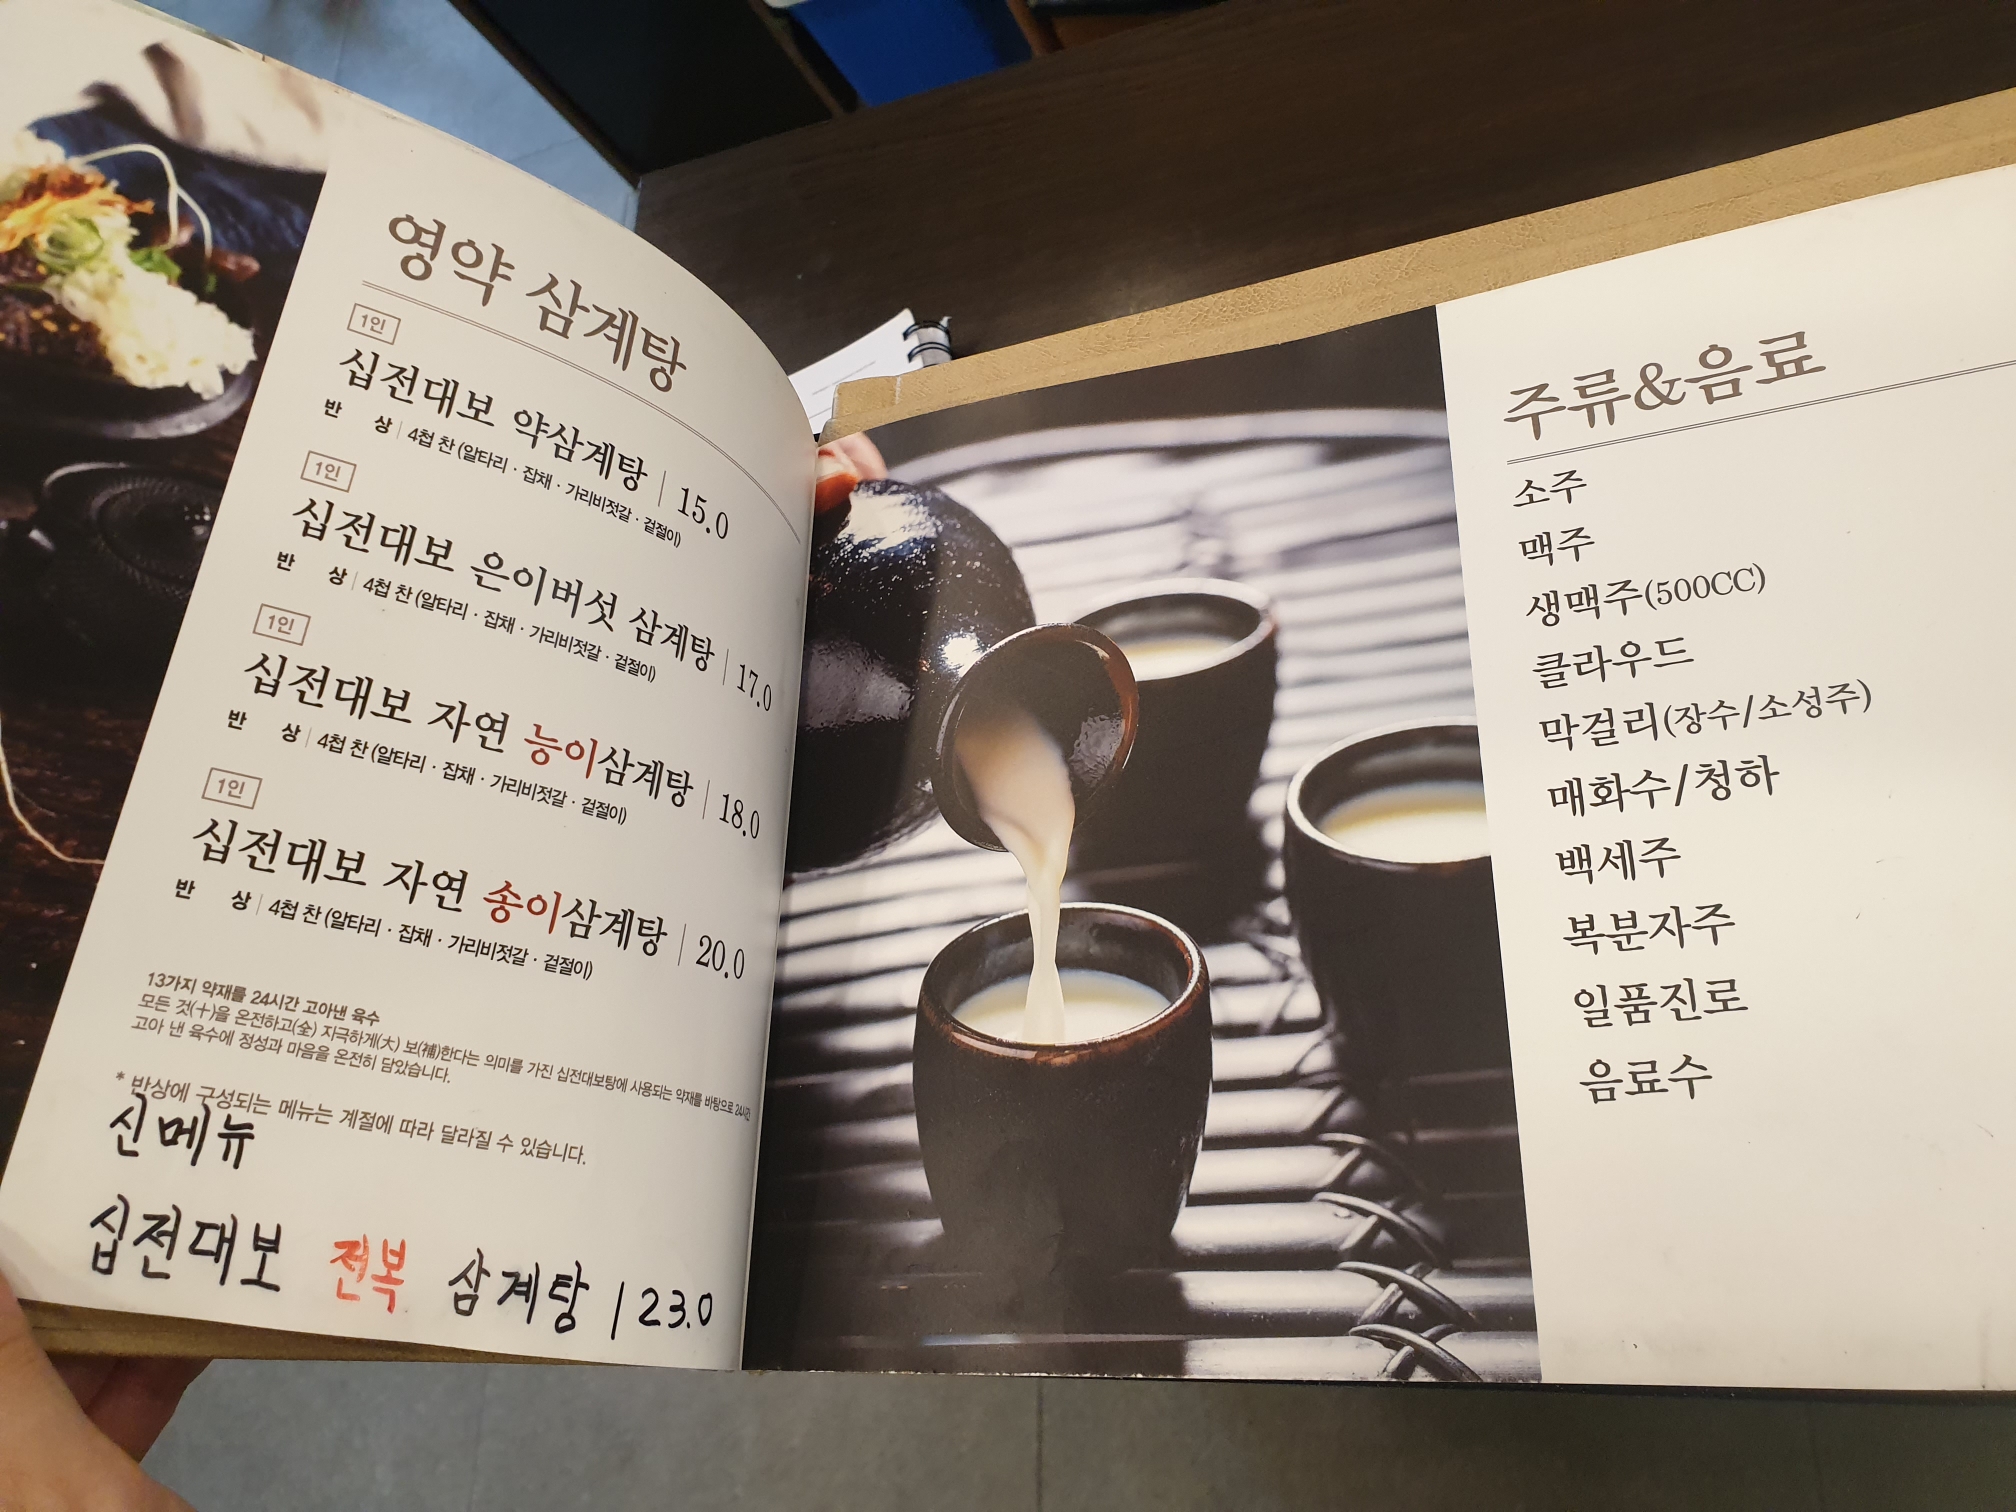 영약 삼계탕
1인
십전대보 약삼계탕 | 15.0
반 상 | 4첩 찬 (알타리 · 잡채 · 가리비젓갈 · 겉절이)
1인
십전대보 은이버섯 삼계탕 | 17.0
반 상 | 4첩 찬 (알타리 · 잡채 · 가리비젓갈 · 겉절이)
1인
십전대보 자연 능이삼계탕 | 18.0
반 상 | 4첩 찬 (알타리 · 잡채 · 가리비젓갈 · 겉절이)
1인
십전대보 자연 송이삼계탕 | 20.0
반 상 | 4첩 찬 (알타리 · 잡채 · 가리비젓갈 · 겉절이)
13가지 약재를 24시간 고아낸 육수
모든 것(十)을 온전하고(全) 지극하게(大) 보(補)한다는 의미를 가진 십전대보탕에 사용되는 약재를 바탕으로 24시간
고아 낸 육수에 정성과 마음을 온전히 담았습니다.
* 반상에 구성되는 메뉴는 계절에 따라 달라질 수 있습니다.
신메뉴
십전대보 전복 삼계탕 | 23.0
주류&음료
소주
맥주
생맥주(500CC)
클라우드
막걸리(장수/소성주)
매화수/청하
백세주
복분자주
일품진로
음료수